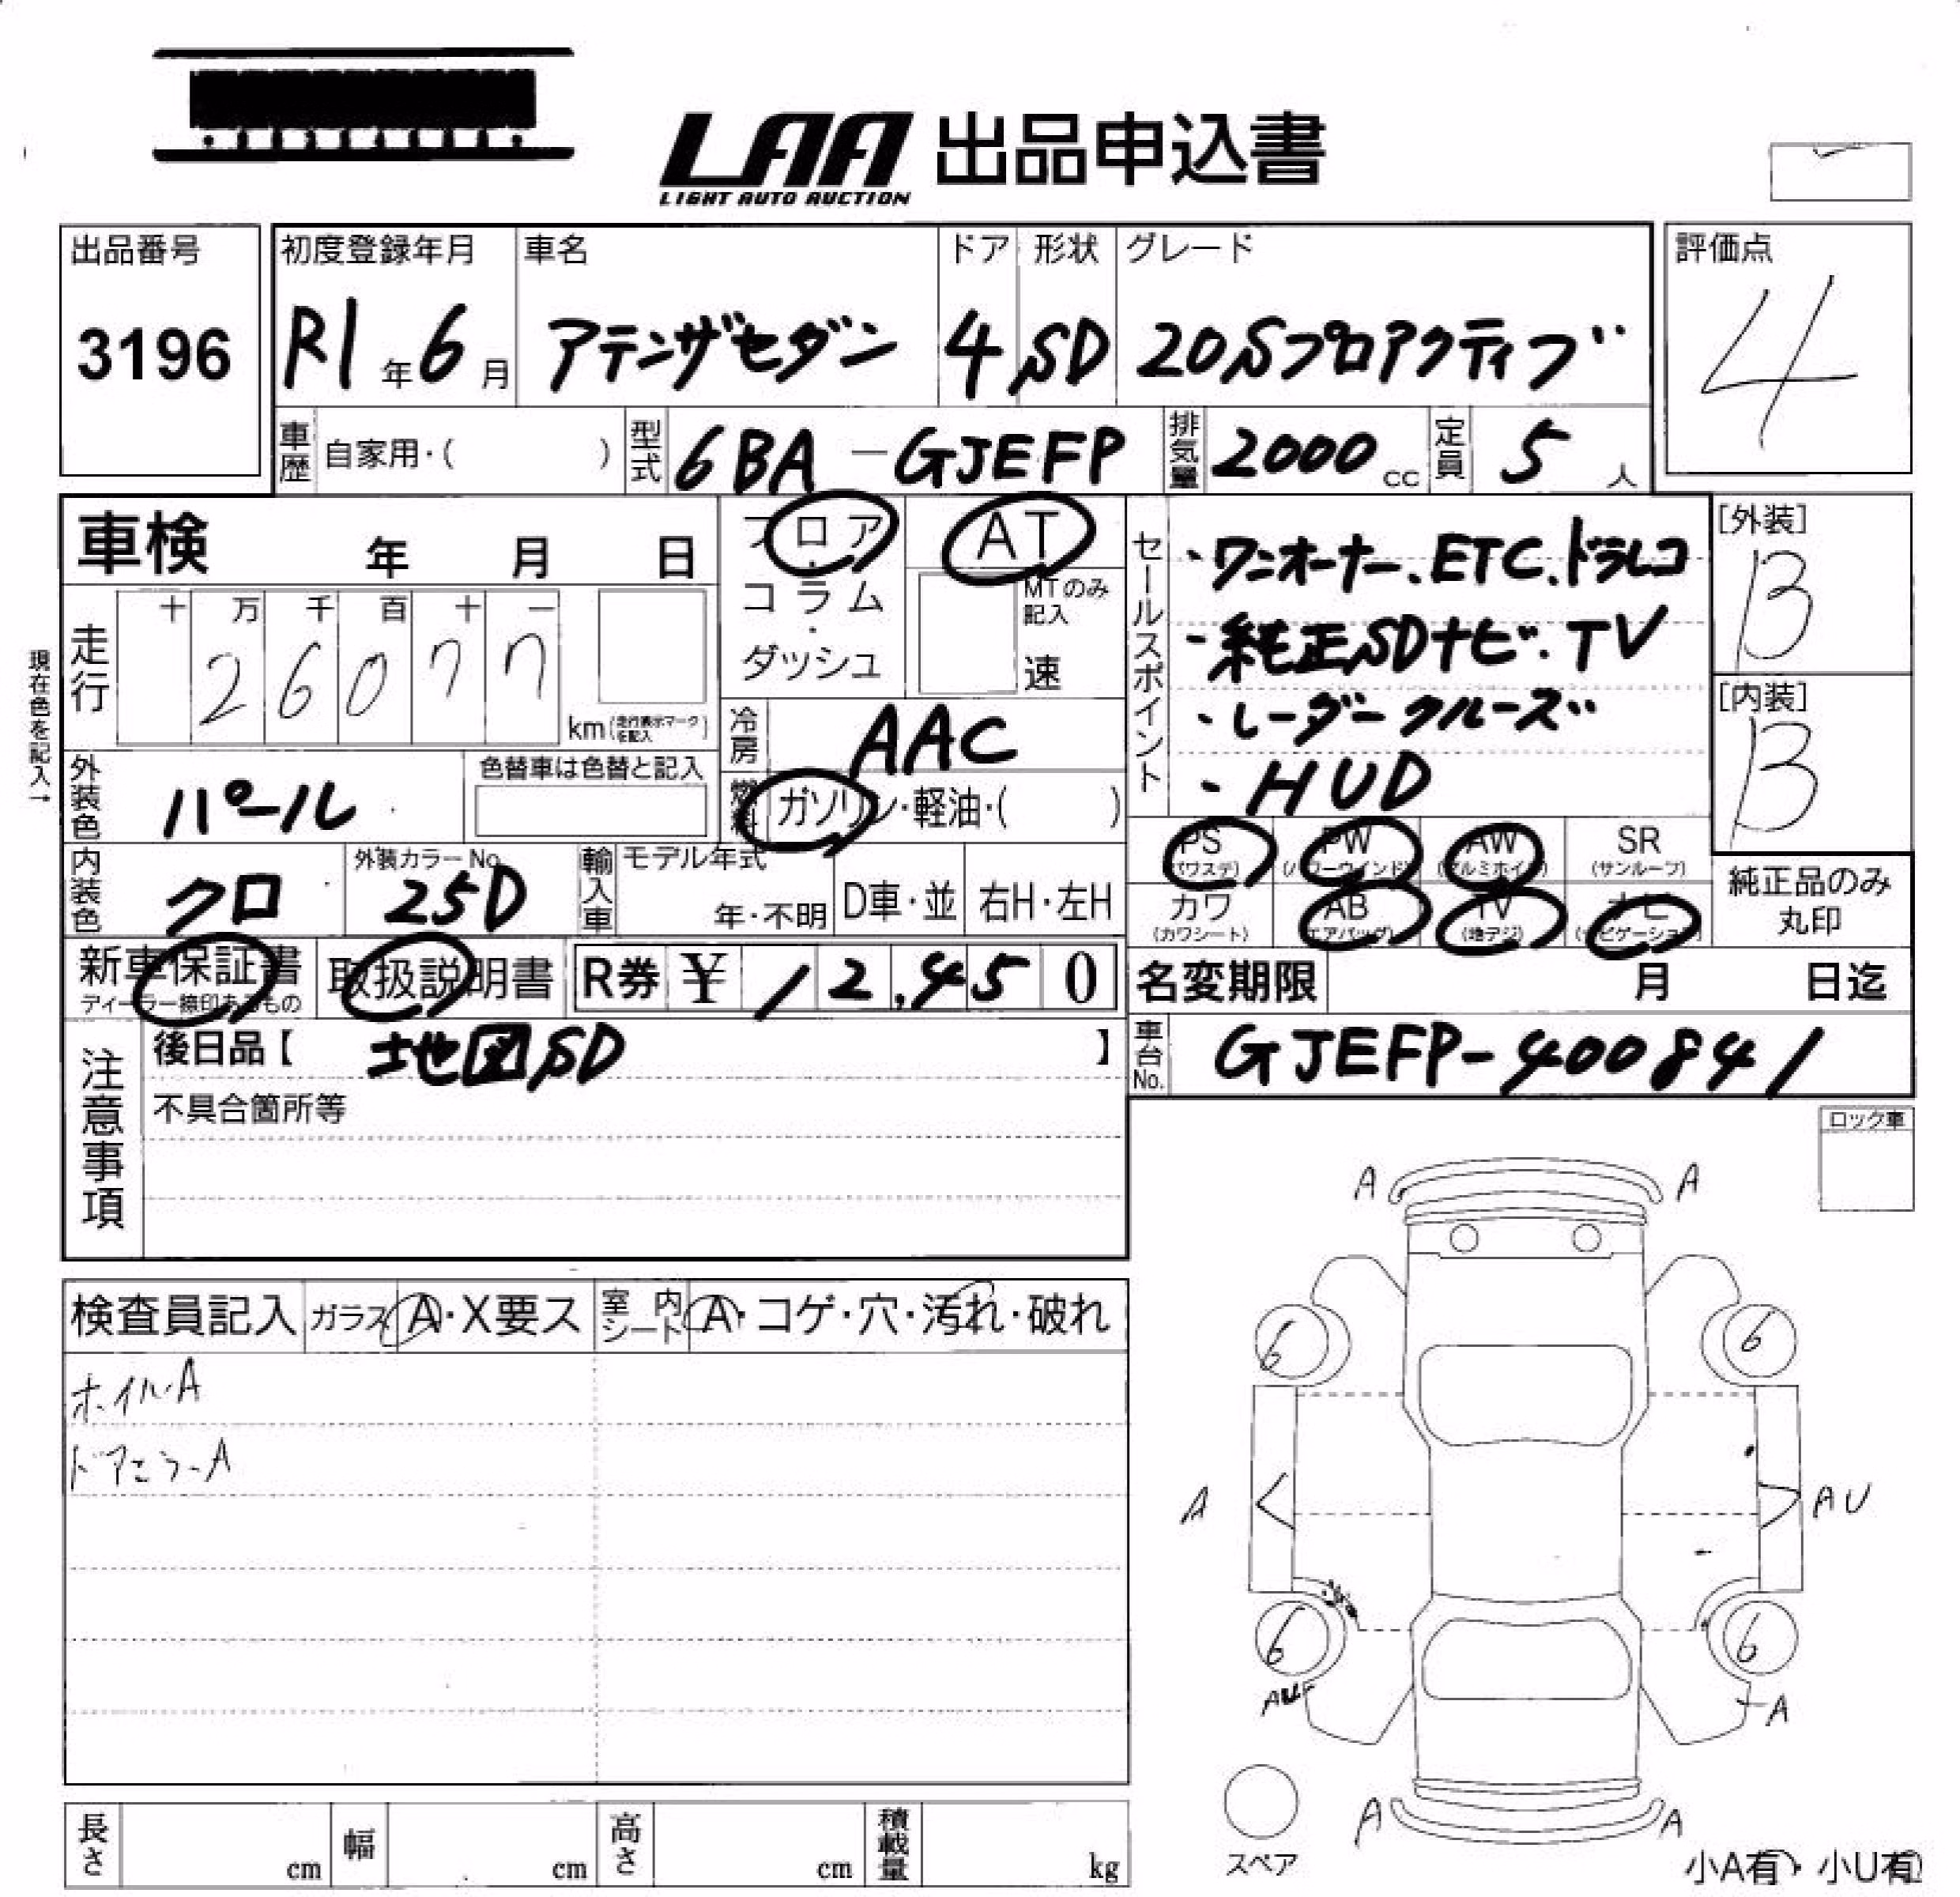 LAA 出品申込書
LIGHT AUTO AUCTION
出品番号
3196
初度登録年月
R1年6月
車名
アテンザセダン
ドア
4
形状
SD
グレード
20Sプロアクティブ
評価点
4
車歴 自家用・( )
型式 6BA-GJEFP
排気量 2000cc
定員 5人
車検 年 月 日
フロア・
コラム・
ダッシュ
AT
MTのみ記入
速
セールスポイント
・ワンオーナー、ETC、ドラレコ
・純正SDナビ・TV
・レーダークルーズ
・HUD
[外装]
B
[内装]
B
現在色を記入→
走行 十 万 千 百 十 一
26077
km(走行表示マークを記入)
冷房 AAC
燃料 ガソリン・軽油・( )
外装色 パール
色替車は色替と記入
内装色 クロ
外装カラーNo.
25D
輸入車 モデル年式
年・不明 D車・並 右H・左H
PS (パワステ)
PW (パワーウインド)
AW (アルミホイル)
SR (サンルーフ)
カワ (カワシート)
AB (エアバッグ)
TV (地デジ)
ナビ (ナビゲーション)
純正品のみ
丸印
新車保証書
ディーラー捺印あるもの
取扱説明書
R券 ¥ 12,450
名変期限 月 日迄
車台No. GJEFP-400841
注意事項
後日品【 地図SD 】
不具合箇所等
ロック車
検査員記入 ガラス A・X要ス 室内シート A・コゲ・穴・汚れ・破れ
ホイルA
ドアミラーA
A A
6 6
A AU
6 6
A
A A
スペア
長さ cm 幅 cm 高さ cm 積載量 kg
小A有、小U有